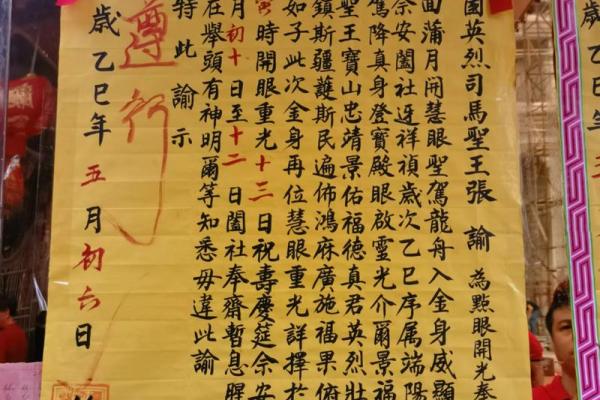 園英烈司馬聖王張 諭 為點眼開光奉
面蒲月開慧眼聖駕龍舟入金身威顯
奈安闔社迓祥禎歲次乙巳序属端陽
駕降真身登寶殿眼啟靈光介爾景福
聖王寶山忠靖景佑福德真君英烈壯
鎮斯疆護斯民遍佈鴻庥廣施福果俯
如子此次金身再位慧眼重光詳擇於
時開眼重光十三日祝壽慶莚余安
月初十日至十二日闔社奉齋暫息腥
在舉頭有神明爾等知悉毋違此諭
特此諭示
遵行
歲乙巳年五月初六日
歲乙巳年